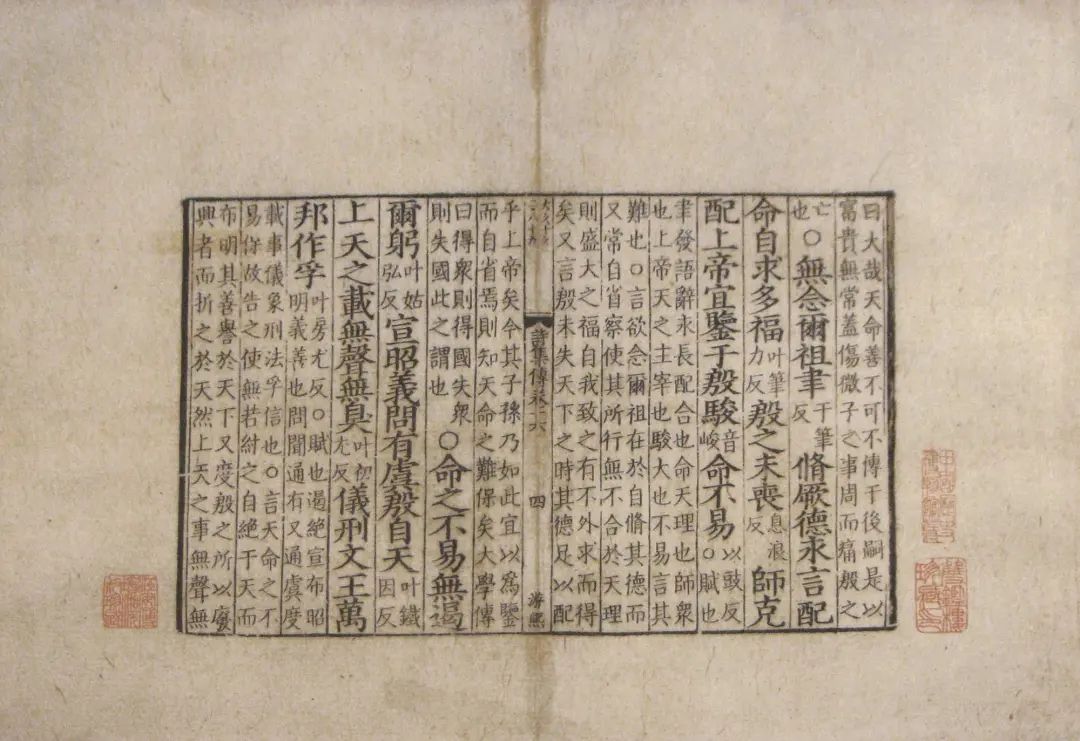 曰大哉天命善不可不傳于後嗣是以
富貴無常蓋傷微子之事周而痛殷之
亡也○無念爾祖聿于筆反脩厥德永言配
命自求多福叶筆力反殷之未喪息浪反師克
配上帝宜鑒于殷駿音峻命不易以豉反○賦也
聿發語辭永長配合也命天理也師衆
也上帝天之主宰也駿大也不易言其
難也○言欲念爾祖在於自脩其德而
又常自省察使其所行無不合於天理
則盛大之福自我致之有不外求而得
矣又言殷未失天下之時其德足以配
詩集傳卷十六
四
游熙
乎上帝矣今其子孫乃如此宜以爲鑒
而自省焉則知天命之難保矣大學傳
曰得衆則得國失衆則失國此之謂也○命之不易無遏
爾躬叶姑弘反宣昭義問有虞殷自天叶鐵因反
上天之載無聲無臭叶初尤反儀刑文王萬
邦作孚叶房尤反○賦也遏絶宣布昭明義善也問聞通有又通虞度
載事儀象刑法孚信也○言天命之不
易保故告之使無若紂之自絶于天而
布明其善譽於天下又度殷之所以廢
興者而折之於天然上天之事無聲無